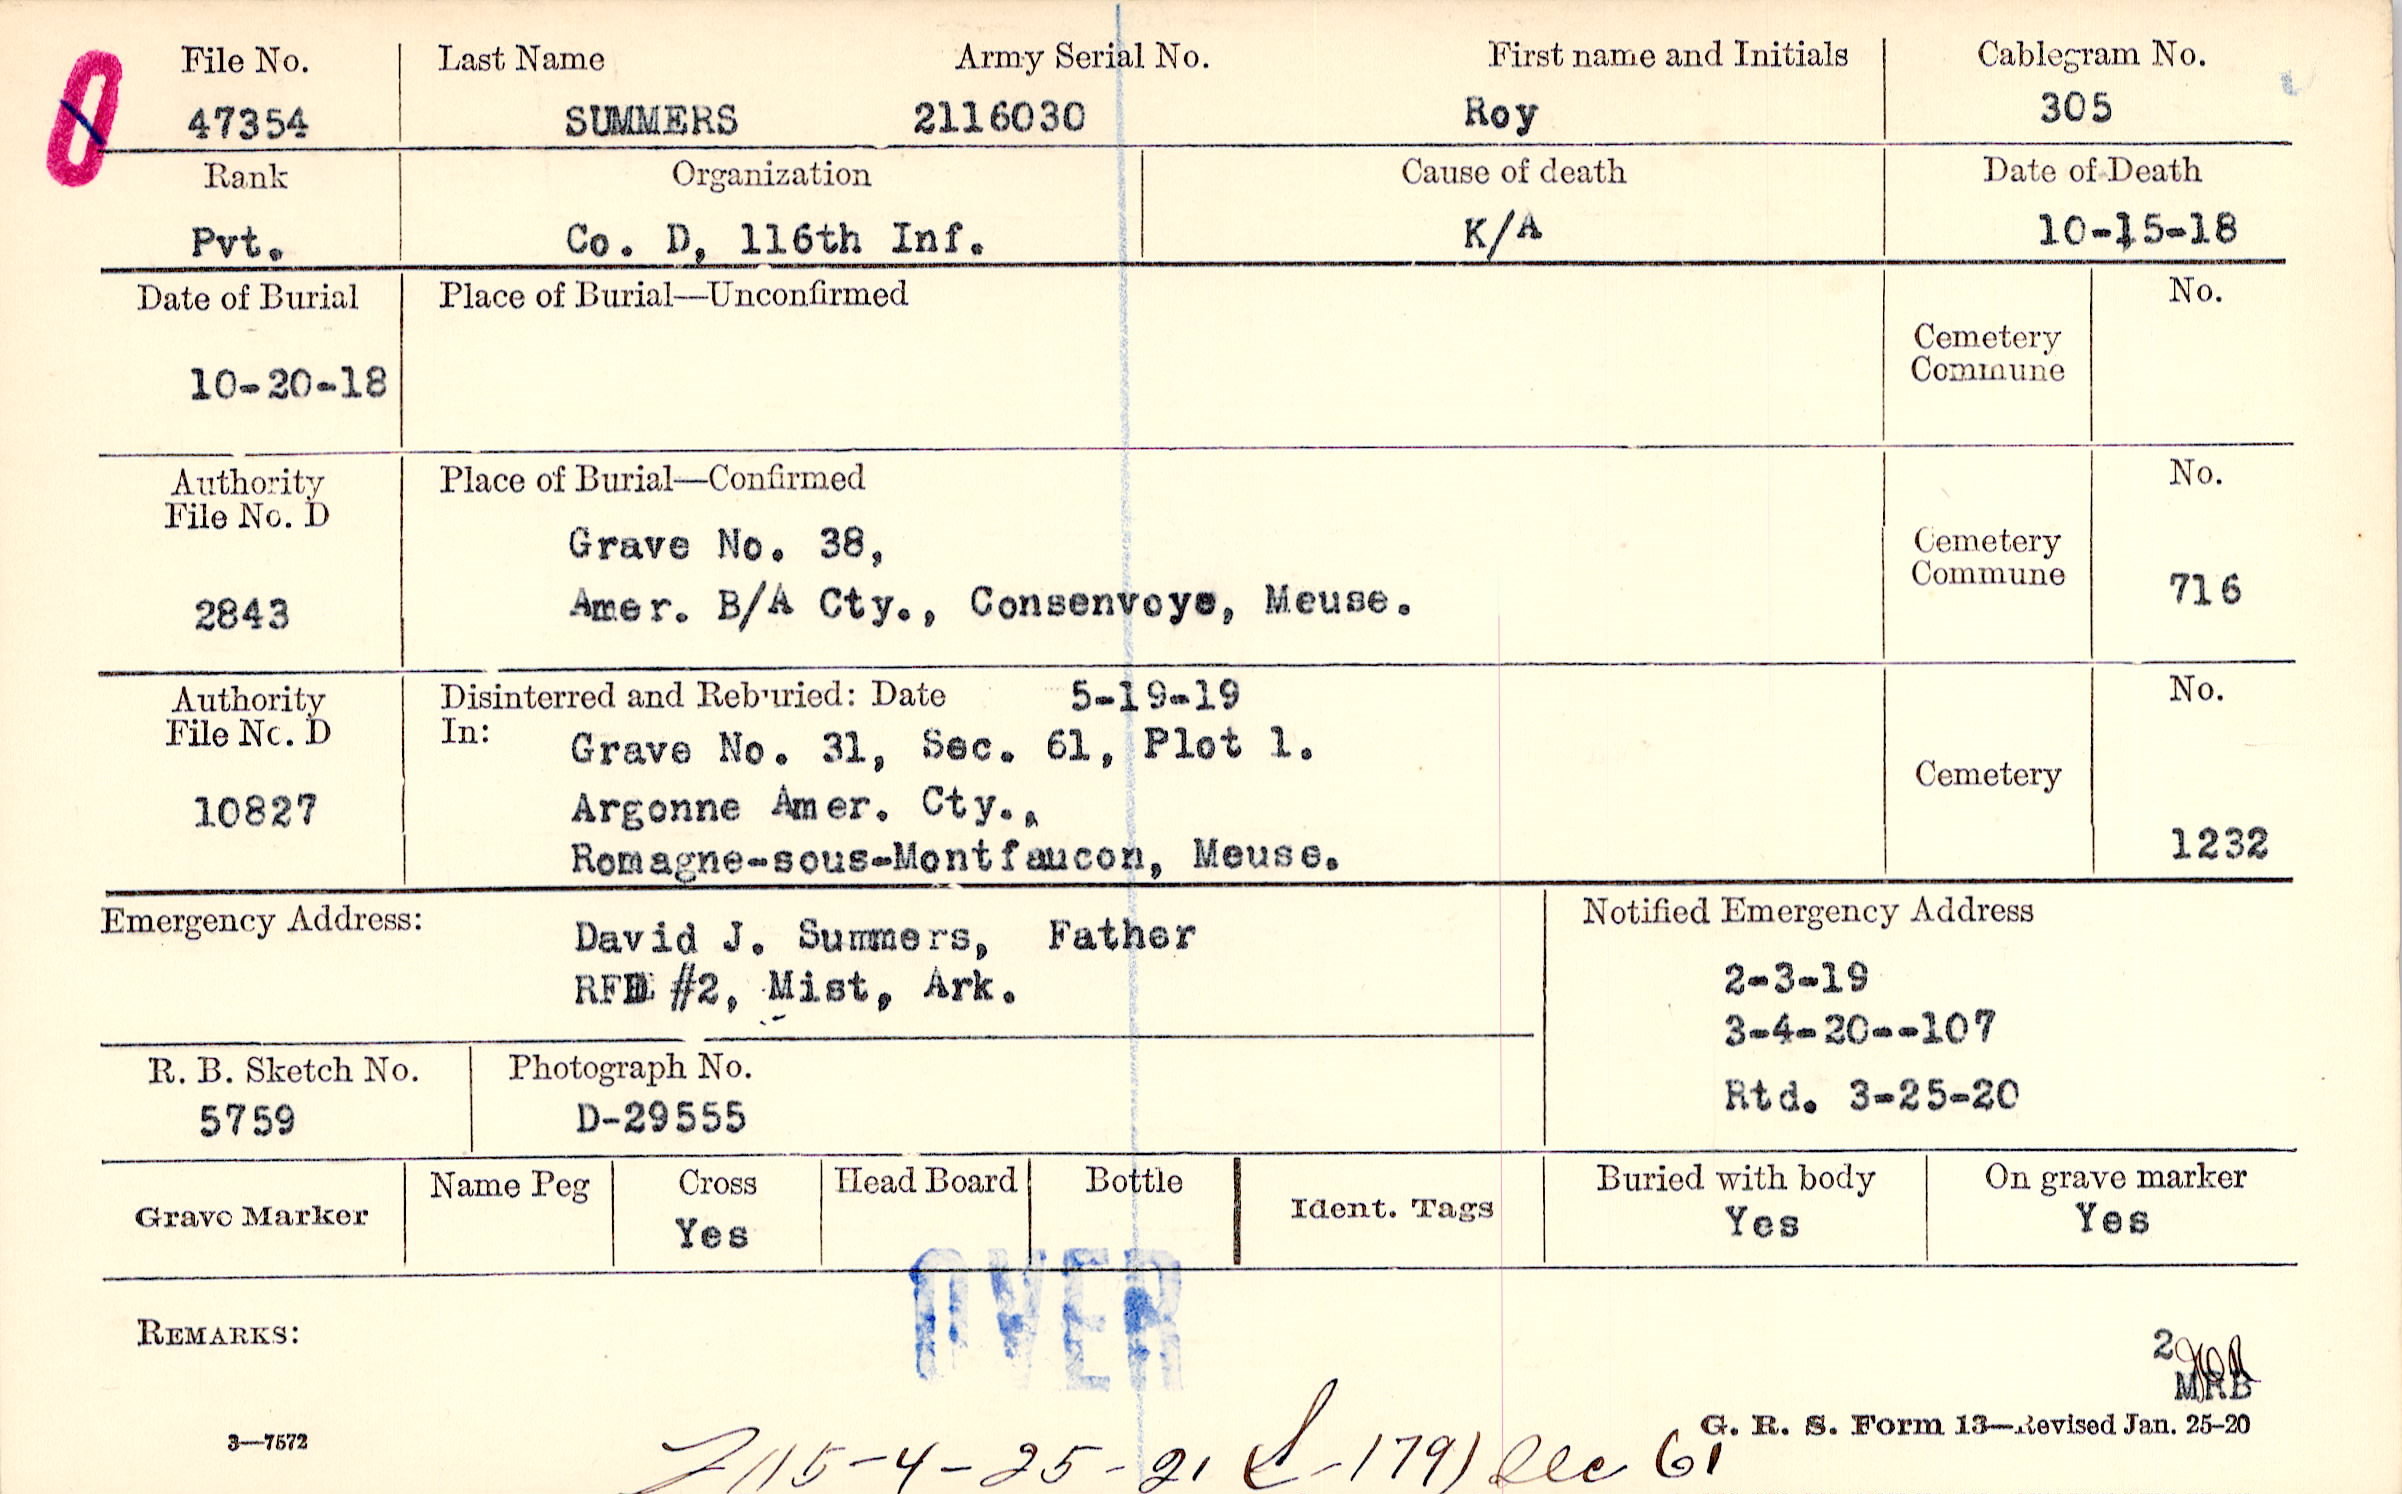 File No. Last Name Army Serial No. First name and Initials Cablegram No.
47354 SUMMERS 2116030 Roy 305
Rank Organization Cause of death Date of Death
Pvt. Co. D, 116th Inf. K/A 10-15-18
Date of Burial Place of Burial—Unconfirmed No.
Cemetery
Commune
10-20-18
Authority Place of Burial—Confirmed No.
File No. D
Grave No. 38,
Cemetery
Commune
2843 Amer. B/A Cty., Consenvoye, Meuse. 716
Authority Disinterred and Reburied: Date 5-19-19 No.
File No. D In: Grave No. 31, Sec. 61, Plot 1.
Cemetery
10827 Argonne Amer. Cty.,
Romagne-sous-Montfaucon, Meuse. 1232
Emergency Address: David J. Summers, Father Notified Emergency Address
RFD #2, Mist, Ark. 2-3-19
3-4-20--107
R. B. Sketch No. Photograph No. Rtd. 3-25-20
5759 D-29555
Grave Marker Name Peg Cross Head Board Bottle Ident. Tags Buried with body On grave marker
Yes Yes Yes
OVER
REMARKS:
2
MRB
3—7572 G. R. S. Form 13—Revised Jan. 25-20
4-25-21 -179) Sec 61